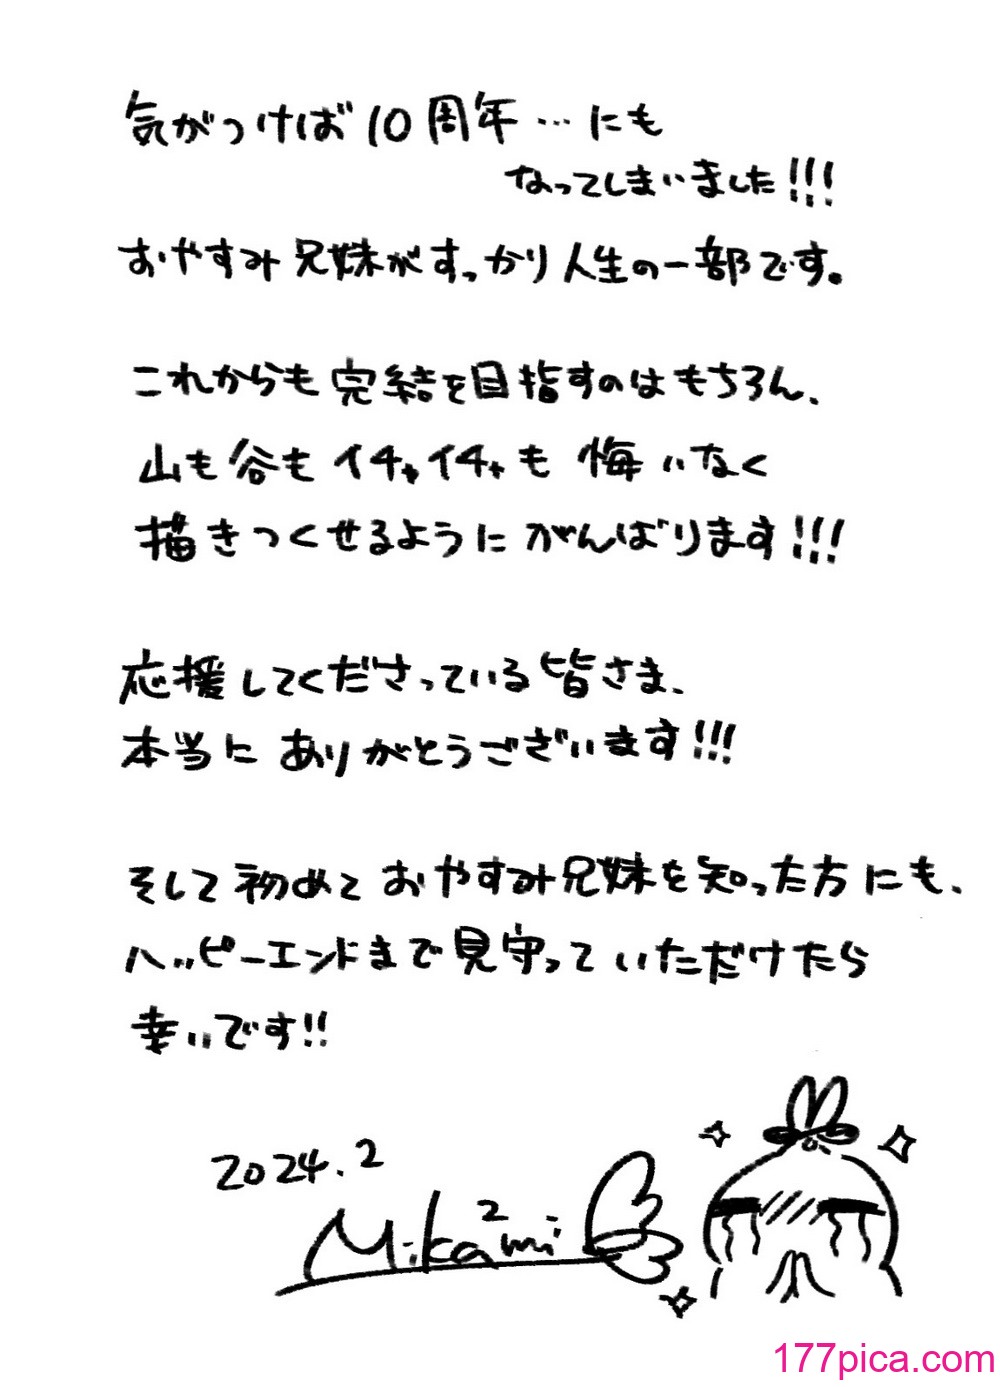 気がつけば10周年…にも
なってしまいました!!!
おやすみ兄妹がすっかり人生の一部です。
これからも完結を目指すのはもちろん、
山も谷もイチャイチャも悔いなく
描きつくせるようにがんばります!!!
応援してくださっている皆さま、
本当にありがとうございます!!!
そして初めておやすみ兄妹を知った方にも、
ハッピーエンドまで見守っていただけたら
幸いです!!
2024.2
Mikami
177pica.com